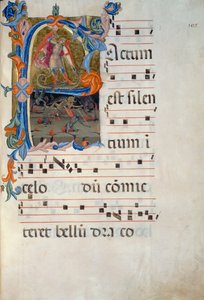 actum
est silen
cium i
celo dū cōmic
teret bellū draco